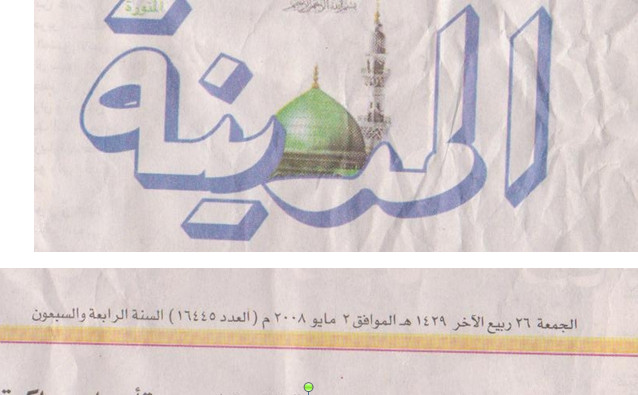 بسم الله الرحمن الرحيم
المدينة
المنورة
الجمعة ٢٦ ربيع الآخر ١٤٢٩ هـ الموافق ٢ مايو ٢٠٠٨ م (العدد ١٦٤٤٥) السنة الرابعة والسبعون